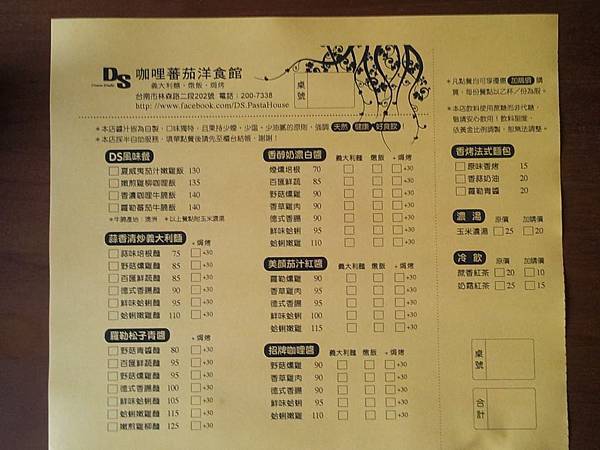 DS 咖哩蕃茄洋食館
義大利麵、燉飯、焗烤
台南市林森路二段202號 電話：200-7338
http://www.facebook.com/DS.PastaHouse
桌號
＊凡點餐均可享優惠 加購價 購買，每份餐點以乙杯／份為限。
＊本店飲料使用蔗糖而非代糖，敬請安心飲用！飲料甜度，依黃金比例調製，恕無法調整。
＊本店醬汁皆為自製，口味獨特，且秉持少煙、少溫、少油膩的原則，強調 天然 健康 好食飲
＊本店採半自助服務，填單點餐後請先至櫃台結帳，謝謝！
DS風味餐
夏威夷茄汁嫩雞飯 130
嫩煎雞柳咖哩飯 135
香濃咖哩牛腩飯 140
羅勒蕃茄牛腩飯 140
＊牛腩產地：澳洲 ＊以上餐點附玉米濃湯
蒜香清炒義大利麵 +焗烤
蒜味培根麵 75 +30
野菇燻雞麵 85 +30
百匯鮮蔬麵 85 +30
德式香腸麵 90 +30
鮮味蛤蜊麵 95 +30
蛤蜊嫩雞麵 110 +30
羅勒松子青醬 +焗烤
野菇青醬麵 80 +30
百匯鮮蔬麵 95 +30
野菇燻雞麵 95 +30
德式香腸麵 100 +30
鮮味蛤蜊麵 105 +30
蛤蜊嫩雞麵 115 +30
嫩煎雞柳麵 125 +30
香醇奶濃白醬 義大利麵 燉飯 +焗烤
煙燻培根 70 +30
百匯鮮蔬 85 +30
野菇燻雞 90 +30
香草雞肉 95 +30
德式香腸 90 +30
鮮味蛤蜊 95 +30
蛤蜊嫩雞 110 +30
美顏茄汁紅醬 義大利麵 燉飯 +焗烤
羅勒燻雞 90 +30
香草雞肉 95 +30
德式香腸 95 +30
鮮味蛤蜊 100 +30
蛤蜊嫩雞 115 +30
招牌咖哩醬 義大利麵 燉飯 +焗烤
野菇燻雞 90 +30
香草雞肉 90 +30
德式香腸 90 +30
鮮味蛤蜊 95 +30
蛤蜊嫩雞 110 +30
香烤法式麵包
原味香烤 15
香蒜奶油 20
羅勒青醬 20
濃湯 原價 加購價
玉米濃湯 25 20
冷飲 原價 加購價
蔗香紅茶 20 10
奶霜紅茶 25 15
桌號
合計